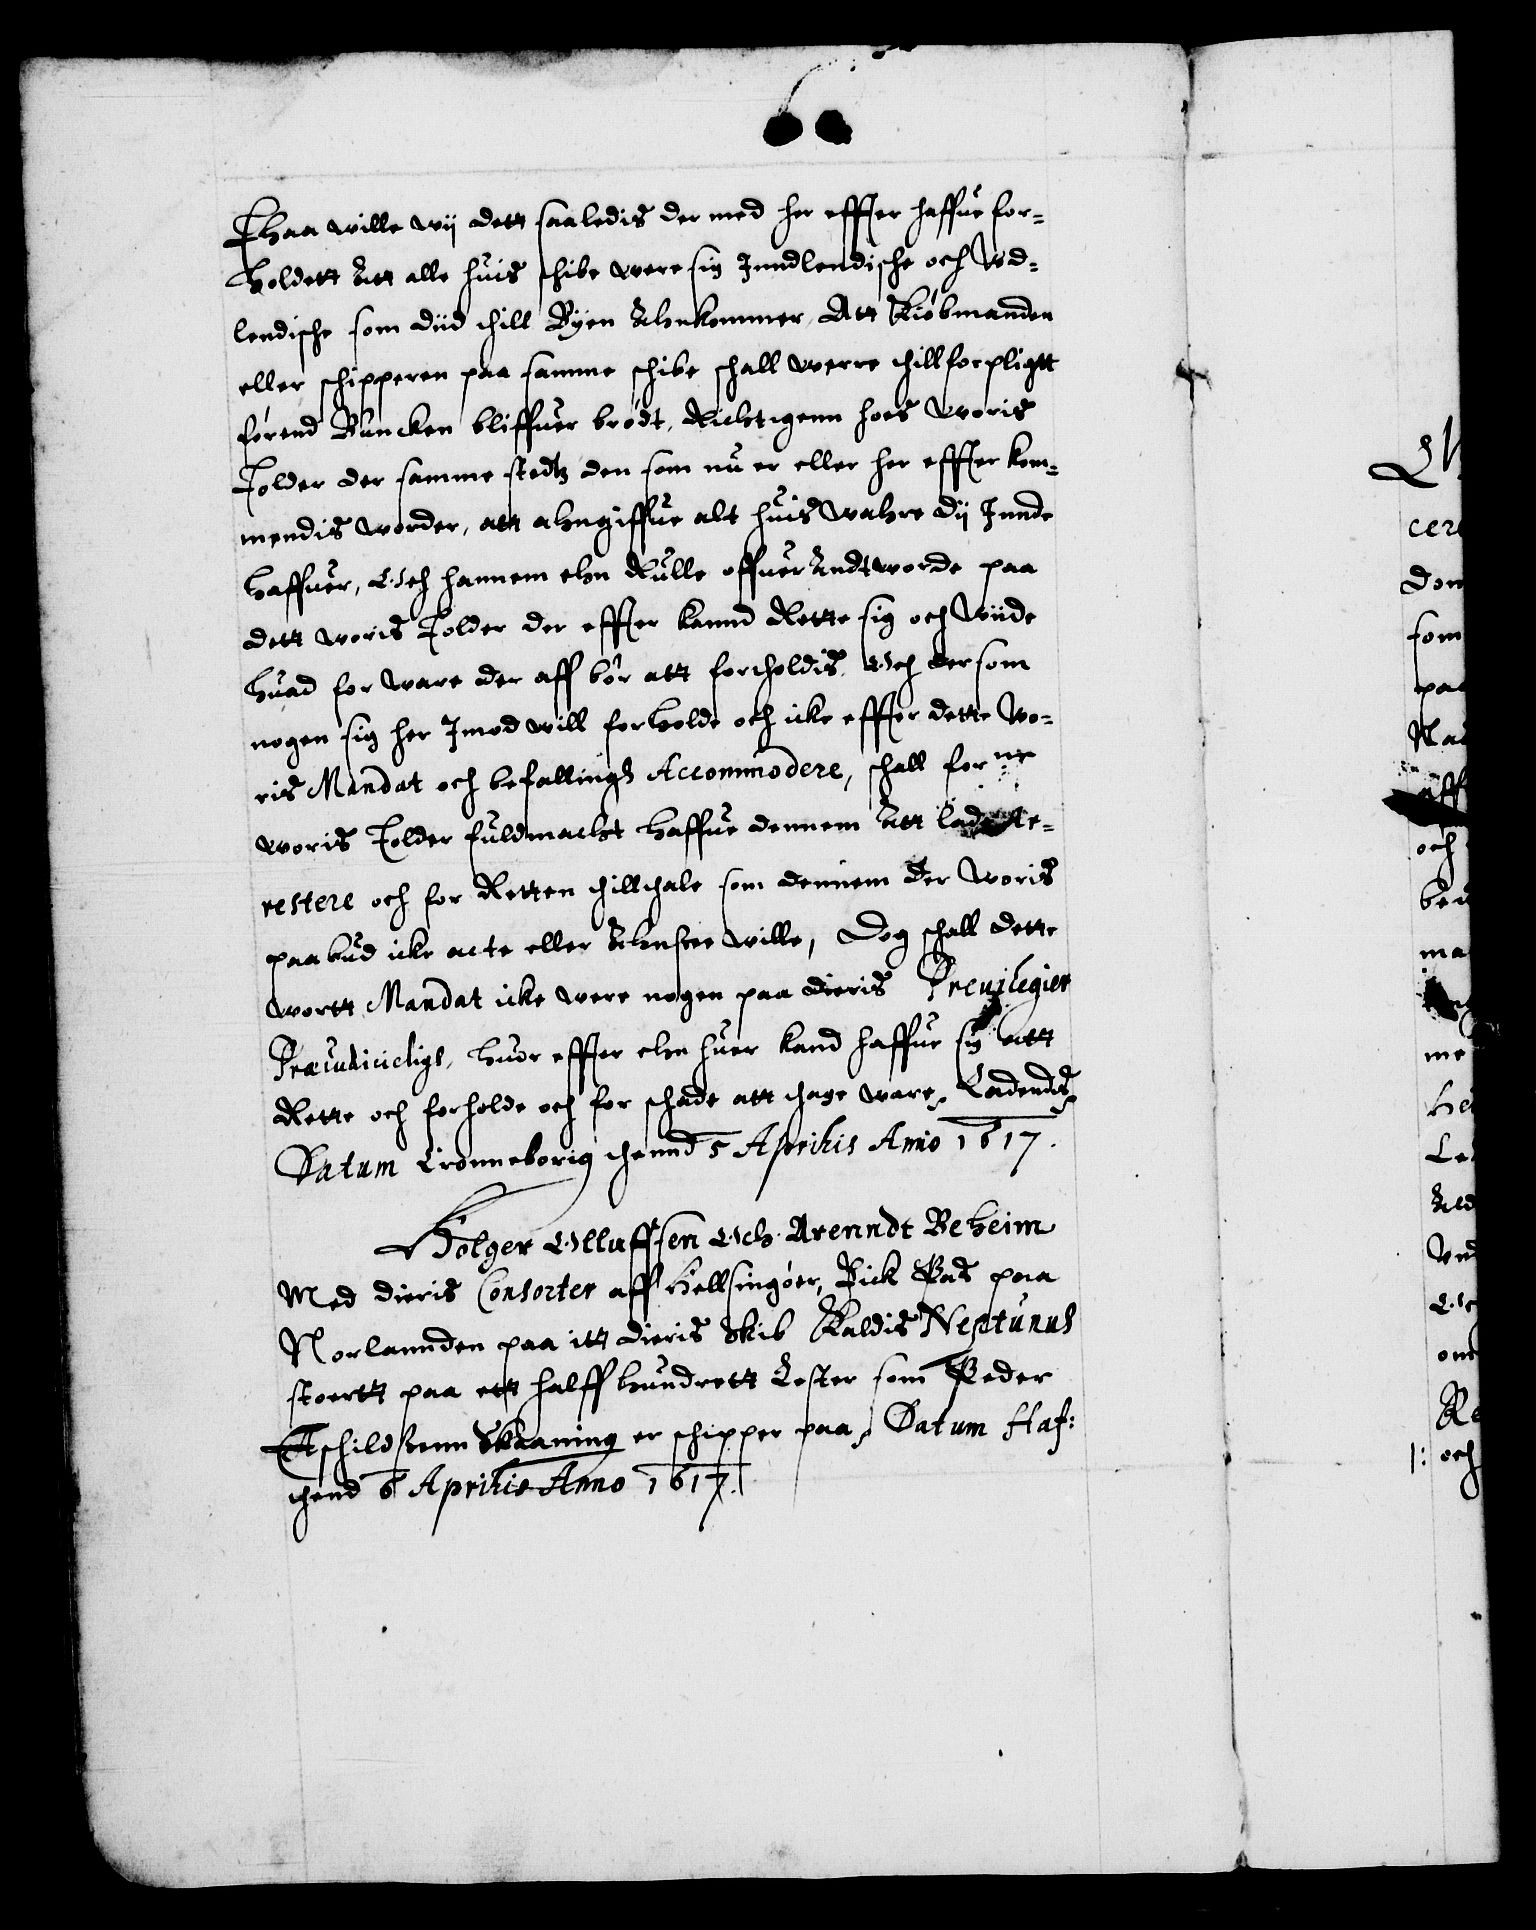 Thaa wille wij dett saaledis der med her effter haffue for-
holdett Att alle huis schibe were sig Inndlendische och Vd-
lendische som diid thill Byen Ahnkommer, Att Kiøbmanden
eller schipperen paa samme schibe schall werre thillforpligtt
førend Buncken bliffuer brødt, Richtigenn hoes woris
Tolder der samme stedtz den som nu er eller her effter kom-
mendis worder, att ahngiffue alt huis wahre dij Innde
haffuer, Och hannem ehn Rulle offuer Andtworde paa
dett woris Tolder der effter kannd Rette sig och wiide
huad for ware der aff bør att fortholdis, Och dersom
nogen sig her Imod will forholde och icke effter dette Wo-
ris Mandat och befallingh Accommodere, schall forne
woris Tolder fuldmacht haffue dennem Att lade Ar-
restere och for Retten thillthale som dennem der woris
paabud icke acte eller Ahnsee wille, Dog schall dette
wortt Mandat icke were nogen paa dieris Preuilegier
Præiudicieligt, huor effter ehn huer kand haffue sig att
Rette och forholde och for schade att thage ware, Ladendis
Datum Cronneborig thennd 5 Aprilis Anno 1617.
Holger Olluffsen Och Arenndt Beheim
Med dieris Consorter aff Hellsingøer, Fick Pas paa
Norlannden paa itt dieris Skib Kaldis Neptunus
stoertt paa ett halff hundrett Lester som Peder
Eschildssenn Skaaning er schipper paa, Datum Haf:
thend 6 Aprilis Anno 1617.
cere
som
paa
och
ma
me
och